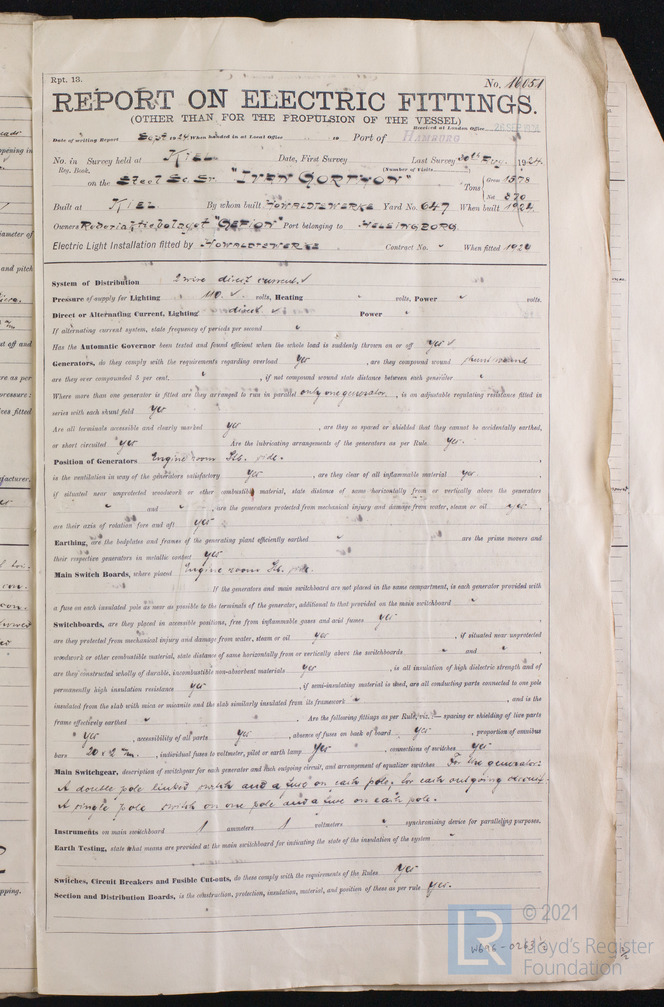 Rpt. 13.
No. 16051
REPORT ON ELECTRIC FITTINGS.
(OTHER THAN FOR THE PROPULSION OF THE VESSEL)
Received at London Office
Date of writing Report Sept 1924 When handed in at Local Office 19 Port of HAMBURG
No. in Survey held at KIEL Date, First Survey Last Survey 20th Aug. 1924.
Reg. Book. (Number of Visits
on the Steel Sc. Sr. "IVEN GORTHON" Tons Gross 1578
Net 870
Built at KIEL By whom built HOWALDTSWERKE Yard No. 647 When built 1924
Owners Rederiaktiebolaget "GEFION" Port belonging to HELSINGBORG
Electric Light Installation fitted by HOWALDTSWERKE Contract No. " When fitted 1924
System of Distribution 2 wire direct current.
Pressure of supply for Lighting 110 volts, Heating " volts, Power " volts.
Direct or Alternating Current, Lighting direct Power "
If alternating current system, state frequency of periods per second "
Has the Automatic Governor been tested and found efficient when the whole load is suddenly thrown on or off yes
Generators, do they comply with the requirements regarding overload yes , are they compound wound shunt wound
are they over compounded 5 per cent. " , if not compound wound state distance between each generator "
Where more than one generator is fitted are they arranged to run in parallel only one generator , is an adjustable regulating resistance fitted in
series with each shunt field yes
Are all terminals accessible and clearly marked yes , are they so spaced or shielded that they cannot be accidentally earthed,
or short circuited yes Are the lubricating arrangements of the generators as per Rule yes.
Position of Generators Engine room Stb. side.
is the ventilation in way of the generators satisfactory yes , are they clear of all inflammable material yes
if situated near unprotected woodwork or other combustible material, state distance of same horizontally from or vertically above the generators
" and " , are the generators protected from mechanical injury and damage from water, steam or oil yes ,
are their axis of rotation fore and aft yes
Earthing, are the bedplates and frames of the generating plant efficiently earthed " are the prime movers and
their respective generators in metallic contact yes
Main Switch Boards, where placed Engine room Stb. side.
If the generators and main switchboard are not placed in the same compartment, is each generator provided with
a fuse on each insulated pole as near as possible to the terminals of the generator, additional to that provided on the main switchboard "
Switchboards, are they placed in accessible positions, free from inflammable gases and acid fumes yes ,
are they protected from mechanical injury and damage from water, steam or oil yes , if situated near unprotected
woodwork or other combustible material, state distance of same horizontally from or vertically above the switchboards " and " ,
are they constructed wholly of durable, incombustible non-absorbent materials yes , is all insulation of high dielectric strength and of
permanently high insulation resistance yes , if semi-insulating material is used, are all conducting parts connected to one pole
insulated from the slab with mica or micanite and the slab similarly insulated from its framework " , and is the
frame effectively earthed " . Are the following fittings as per Rule, viz.:— spacing or shielding of live parts
yes , accessibility of all parts yes , absence of fuses on back of board yes , proportion of omnibus
bars 20 x 2 m/m , individual fuses to voltmeter, pilot or earth lamp yes , connections of switches yes
Main Switchgear, description of switchgear for each generator and each outgoing circuit, and arrangement of equalizer switches For the generator:
A double pole linked switch and a fuse on each pole, for each outgoing circuit.
A single pole switch on one pole and a fuse on each pole.
Instruments on main switchboard 1 ammeters 1 voltmeters " synchronising device for paralleling purposes.
Earth Testing, state what means are provided at the main switchboard for indicating the state of the insulation of the system "
Switches, Circuit Breakers and Fusible Cut-outs, do these comply with the requirements of the Rules yes
Section and Distribution Boards, is the construction, protection, insulation, material, and position of these as per rule yes.
LR
© 2021
Lloyd's Register
Foundation